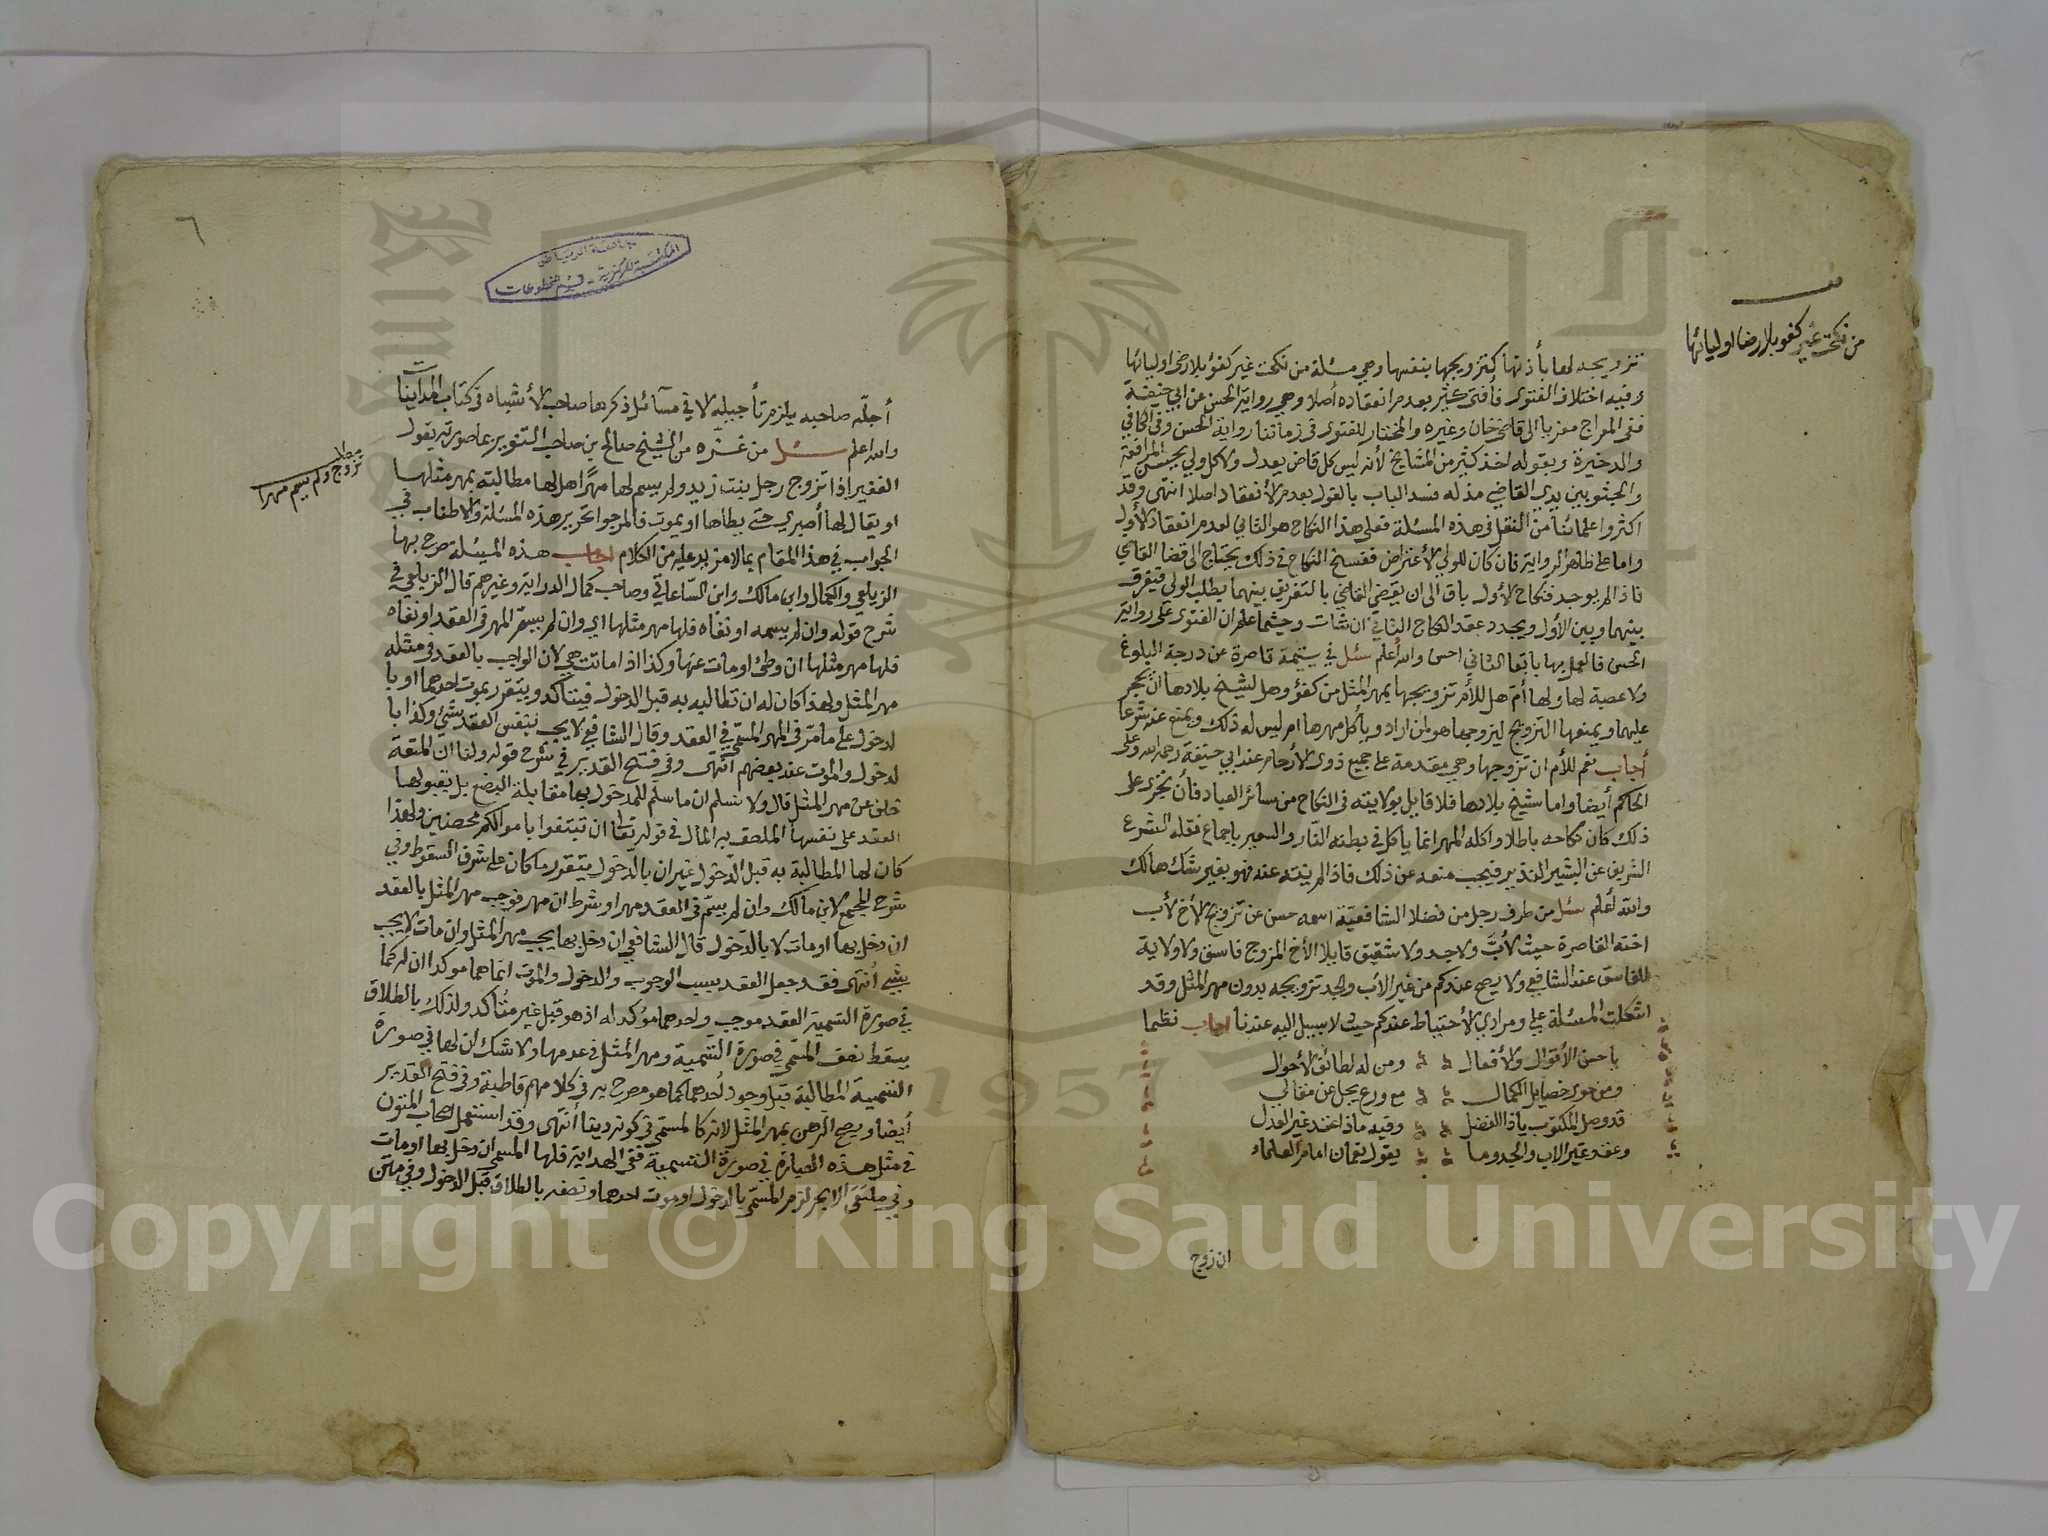 من نكحت غير كفو بلا رضا اوليائها
تزويجه لها بأذنها كتزويجها بنفسها وهي مسئلة من نكحت غير كفؤ بلا رضى اوليائها
وفيه اختلاف الفتوى فأفتى كثير بعدم انعقاده أصلا وهي رواية الحسن عن ابي حنيفة
ففي المعراج معزيا الى قاضي خان وغيره والمختار للفتوى في زماننا رواية الحسن وفي الكافي
والذخيرة وبقوله اخذ كثير من المشايخ لأنه ليس كل قاض يعدل ولا كل ولي يحسن المرافعة
والجثو بين يدي القاضي مذله فسد الباب بالقول بعدم الأنعقاد اصلا انتهى وقد
اكثروا علمائنا من النقل في هذه المسئلة فعلى هذا النكاح هو الثاني لعدم انعقاد الأول
واما على ظاهر الرواية فان كان للولي الأعتراض ففسخ النكاح في ذلك يحتاج الى قضا القاضي
فاذا لم يوجد فنكاح الأول باق الى ان يقضي القاضي بالتفريق بينهما بطلب الولي فيفرق
بينهما وبين الأول ويجدد عقد النكاح الثاني ان شات وحيثما علم ان الفتوى على رواية
الحسن فالعمل بها بابقا الثاني احسن والله أعلم سئل في يتيمة قاصرة عن درجة البلوغ
ولا عصبة لها ولها أم هل للأم تزويجها بمهر المثل من كفؤ وهل لشيخ بلادها ان يحجر
عليها ويمنعها التزويج ليزوجها هو لمن اراد ويأكل مهرها ام ليس له ذلك ويمنع عنه شرعا
أجاب نعم للأم ان تزوجها وهي مقدمة على جميع ذوي الأرحام عند ابي حنيفة رحمه الله وعلى
الحاكم أيضا واما شيخ بلادها فلا قايل بولايته في النكاح من سائر العباد فأن تجرى على
ذلك كان نكاحه باطلا واكله المهر انما ياكل في بطنه النار والسعير باجماع نقله الشرع
الشريف عن البشير النذير فيجب منعه عن ذلك فاذا لم ينته عنه فهو بغير شك هالك
والله أعلم سئل من طرف رجل من فضلا الشافعية اسمه حسن عن تزويج الأخ لأب
اخته القاصرة حيث لا أب ولا جد ولا شقيق قايلا الأخ المزوج فاسق ولا ولاية
للفاسق عند الشافعي ولا يصح عندكم من غير الأب والجد تزويجه بدون مهر المثل وقد
اشكلت المسئلة علي ومرادي الأحتياط عندكم حيث لا سبيل اليه عندنا اجاب نظما
يا حسن الأقوال والأفعال ومن له لطائف الأحوال
ومن حوى خصايل الكمال مع ورع يجل عن مقالي
قد وصل المكتوب يا ذا الفضل وفيه ماذا عند غير العدل
وعقد غير الاب والجد وما يقول نعمان امام العلماء
ان زوج
٦
المكتبة المركزية - قسم المخطوطات
مطلب
تزوج ولم يسم مهرا
أجله صاحبه يلزم تأجيله الا في مسائل ذكرها صاحب الأشباه في كتاب المداينات
والله اعلم سئل من غزه من الشيخ صالح بن صاحب التنوير بما صورته يقول
الفقير اذا تزوج رجل بنت زيد ولم يسم لها مهرًا هل لها مطالبته بمهر مثلها
او يقال لها أصبري حتى يطاها او يموت فالمرجوا تحرير هذه المسئلة والاطناب في
الجواب في هذا المقام بما لا مزيد عليه من الكلام اجاب هذه المسئلة صرح بها
الزيلعي والكمال وابن مالك وابن الساعاتي وصاحب كمال الدراية وغيرهم قال الزيلعي في
شرح قوله وان لم يسمه او نفاه فلها مهر مثلها اي وان لم يسم المهر في العقد او نفاه
فلها مهر مثلها ان وطئ او مات عنها وكذا اذا ماتت هي لان الواجب بالعقد في مثله
مهر المثل ولهذا كان لها ان تطالبه به قبل الدخول فيتأكد ويتقرر بموت احدهما او با
لدخول على ما مر في المهر المسمى في العقد وقال الشافعي لا يجب بنفس العقد شئ وكذا با
لدخول والموت عند بعضهم انتهى وفي فتح القدير في شرح قوله ولنا ان المتعة
خلف عن مهر المثل قال ولا نسلم ان ما سلم للمدخول بها مقابلة البضع بل بقبولها
العقد على نفسها الملحق به المال في قوله تعالى ان تبتغوا باموالكم محصنين ولهذا
كان لها المطالبة به قبل الدخول غير ان بالدخول يتقرر ما كان على شرف السقوط وفي
شرح المجمع لابن مالك وان لم يسم في العقد مهر او شرط ان لا مهر فوجب مهر المثل بالعقد
ان دخل بها او مات لا بالدخول قال الشافعي ان دخل بها يجب مهر المثل وان مات لا يجب
شيئ أنتهى فقد جعل العقد سبب الوجوب والدخول والموت انما هما موكدان له كما
في صورة التسمية العقد موجب واحدهما مؤكد له اذ هو قبل غير متأكد ولذلك بالطلاق
يسقط نصف المسمى في صورة التسمية ومهر المثل في عدمها ولا شك ان لها في صورة
التسمية المطالبة قبل وجود أحدهما كما هو مصرح به في كلامهم قاطبة وفي فتح القدير
أيضا ويصح الرهن بمهر المثل لانه كالمسمى في كونه دينا أنتهى وقد استعمل اصحاب المتون
في مثل هذه العبارة في صورة التسمية ففي الهداية فلها المسمى ان دخل بها او مات
وفي ملتقى الابحر لزم المسمى بالدخول او موت احدهما ونصفه بالطلاق قبل الدخول وفي متن